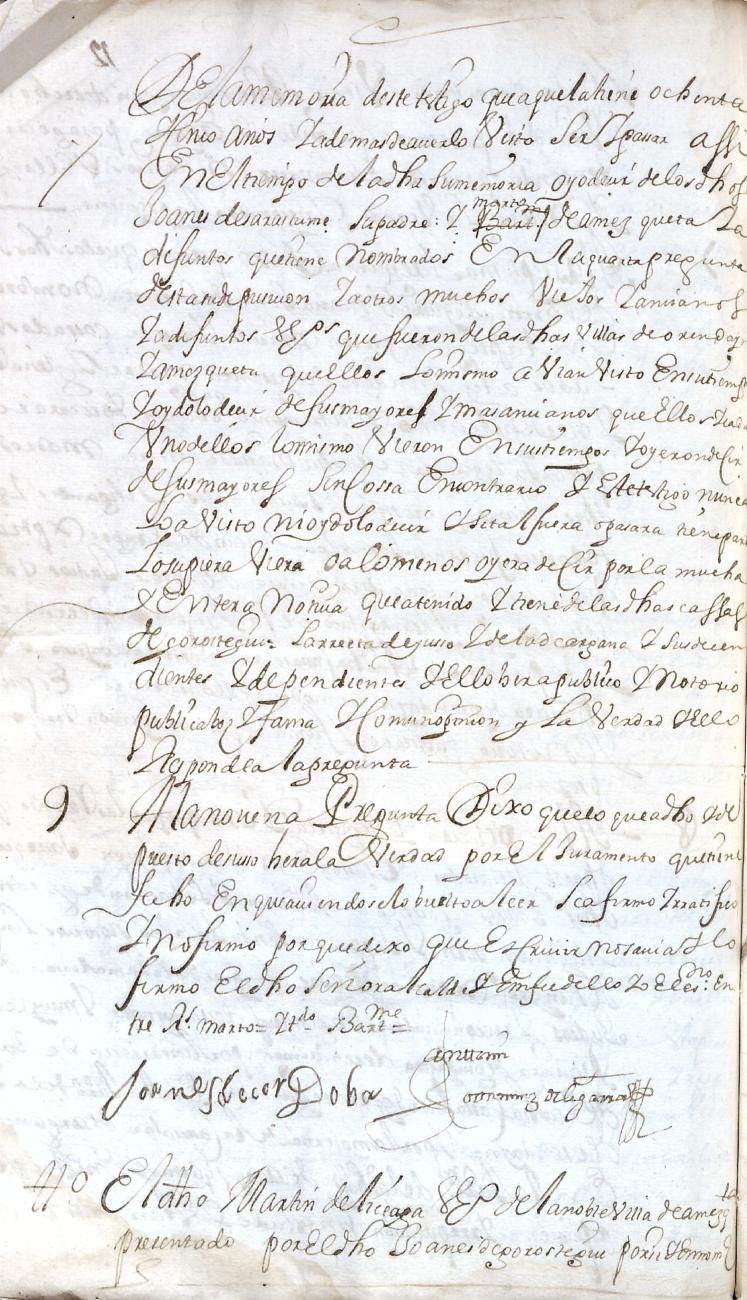 De la memoria deste testigo que aquella tiene ochenta
y cinco años y ademas de averlo visto ser y passar assi
En El tiempo de la dha su memoria oyo decir de los dhos
Joanes de sarastume su padre: y Martin de amezqueta ya
difuntos que tiene nombrados En la quarta pregunta
desta su depusicion y a otros muchos viejos y ancianos
y a difuntos Vos que fueron de las dhas villas de orendayn
y amezqueta que Ellos lo mismo avian visto En su tiempo
y oydolo decir de sus mayores y mas ancianos que Ellos y cada
Uno dellos lo mismo vieron En sus tiempos y oyeron decir
de sus mayores sin cossa En contrario y Este testigo nunca
Lo a visto ni oydolo decir y si tal fuera o pasara tiene para
Lo supiera viera o a lo menos oyera decir por la mucha
y Entera noticia que a tenido y tiene de las dhas cassas
de gorostegui Larreta de yusso y de la de argana y sus decen
dientes y dependientes y Ello hera publico y Notorio
publica boz y fama y Comun opinion y La Verdad y Ello
Responde a la pregunta
9 A la novena Pregunta Dixo que lo que a dho y de
puesto de suso hera la Verdad por El Juramento que tiene
fecho En que aviendoselo buelto a leer se afirmo y rratifico
y no firmo porque dixo que Escrivir no savia y lo
firmo El dho señor alcalde y En fee dello yo El esno: En
tre Rs. marto= y tdo Bartme=
Joanes de corDoba
Ante mi
tto El dho Martin de liceaga Vo de la noble villa de amezqta
presentado por El dho Joanes de gorostegui por si y En nome